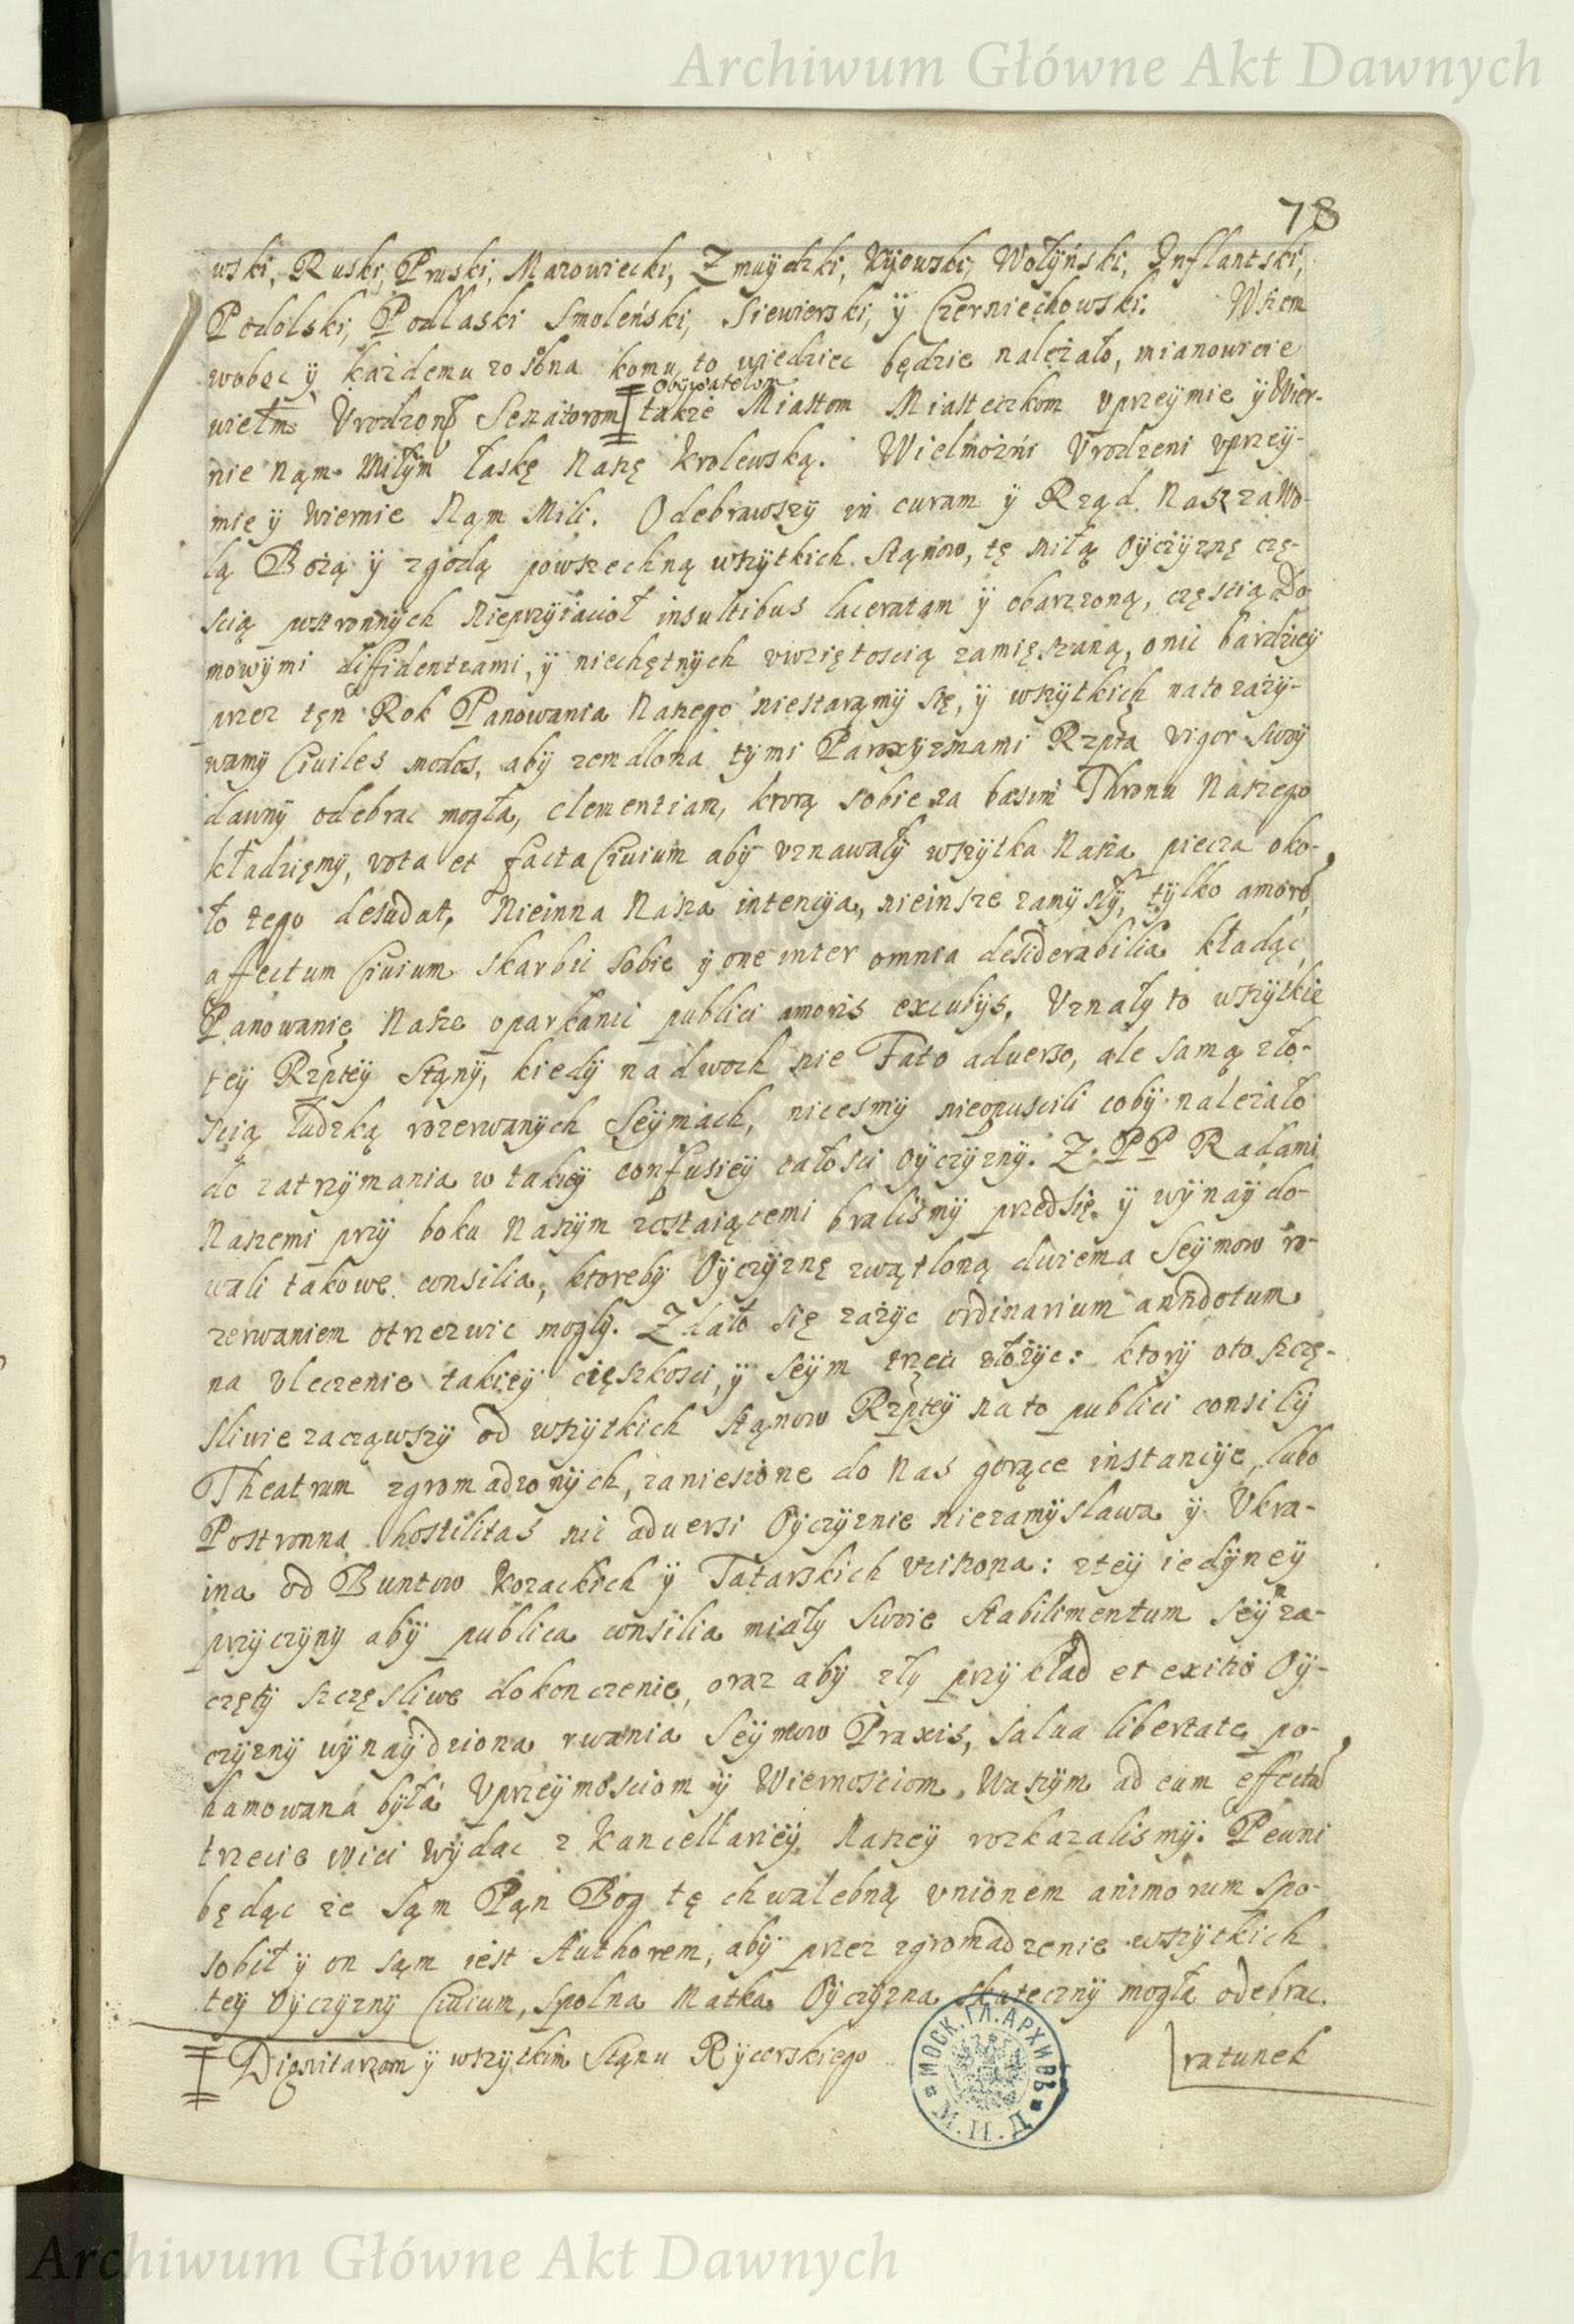 Archiwum Główne Akt Dawnych
78
wski, Ruski, Pruski, Mazowiecki, Zmuÿdzki, Kÿowski, Wołÿński, Inflantski,
Podolski, Podlaski Smoleński, Siewierski, ÿ Czerniechowski. Wszem
wobec ÿ kazdemu zosobna komu to wiedziec będzie nalezało, mianowicie
Obÿwatelom
wielm: Vrodzonÿ Senatorom także Miastom Miasteczkom vprzeÿmie ÿ Wier-
nie Nąm Miłÿm łaskę Naszę Krolewską. Wielmożni Vrodzeni vprzeÿ-
mie ÿ wiernie Nąm Mili. Odebrawszÿ in curam ÿ Rząd Nasz za Wo-
lą Bożą ÿ zgodą powszechną wszÿtkich Stąnow, tę miłą Oÿczÿznę czę-
scią postronnÿch Nieprzÿiacioł insultibus laceratam ÿ obarzzoną, częscią Do
mowÿmi diffidentiami, ÿ niechętnÿch vwziętoscią zamięszaną, o nic bardzieÿ
przez tęn Rok Panowania Naszego niestaramÿ się, ÿ wszÿtkich na to zażÿ-
wamÿ Ciuiles modos, abÿ zemdlona tÿmi Paroxÿzmami Rzpta vigor swoÿ
dawnÿ odebrac mogła, clementiam, ktorą sobie za basim Thronu Naszego
kładziemÿ, vota et facta Ciuium abÿ vznawałÿ wszÿtka Nasza piecza oko-
ło tego desudat, Nieinna Nasza intencÿa, nieinsze zamÿsłÿ, tÿlko amorē,
affectum Ciuium skarbic sobie ÿ one inter omnia desiderabilia kładąc,
Panowanie Nasze oparkanic publici amoris excubÿs. Vznałÿ to wszÿtkie
teÿ Rzpteÿ Stąnÿ, kiedÿ na dwoch nie Fato aduerso, ale samą zło-
scią ludzką rozerwanÿch Seÿmach, nicesmÿ nieopuscili cobÿ nalezało
do zatrzÿmania w takieÿ confusieÿ całosci Oÿczÿznÿ. Z PP Radami
Naszemi przÿ boku Naszÿm zostaiącemi bralismÿ przedsię ÿ wÿnaÿdo-
wali takowe consilia, ktorebÿ Oÿczÿznę zwątloną dwiema Seÿmow ro-
zerwaniem otrzezwic moglÿ. Zdało się zażÿc ordinarium antidotum
na vleczenie takieÿ cięszkosci, ÿ Seÿm trzeci złożÿc: ktorÿ oto szczę-
sliwie zacząwszÿ od wszÿtkich Stąnow Rzpteÿ na to publici consilÿ
Theatrum zgromadzonÿch, zaniesione do Nas gorące instancÿe, lubo
Postronna hostilitas nic aduersi Oÿczÿznie niezamÿslawa ÿ Vkra-
ina od Buntow Kozackich ÿ Tatarskich vciszona: zteÿ iedÿneÿ
przÿczÿnÿ abÿ publica consilia miałÿ swoie stabilimentum Seÿm za-
czętÿ szczęsliwe dokonczenie, oraz abÿ złÿ przÿkład et exitio Oÿ-
czÿznÿ wÿnaÿdziona rwania Seÿmow Praxis, salua libertate po-
hamowana bÿła Vprzeÿmosciom ÿ Wiernosciom Waszÿm ad eum effectū
trzecie wici wÿdac z Kancellarieÿ Naszeÿ rozkazalismÿ. Pewni
będąc ze Sąm Pąn Bog tę chwalebną vnionem animorum spo-
sobił ÿ on sąm iest Authorem, abÿ przez zgromadzenie wszÿtkich
teÿ Oÿczÿznÿ Ciuium, spolna Matka Oÿczÿzna skutecznÿ mogła odebrac.
Dignitarzom ÿ wszÿtkim Stąnu Rÿcerskiego
ratunek
МОСК. ГЛ. АРХИВЪ
М. И. Д.
Archiwum Główne Akt Dawnych